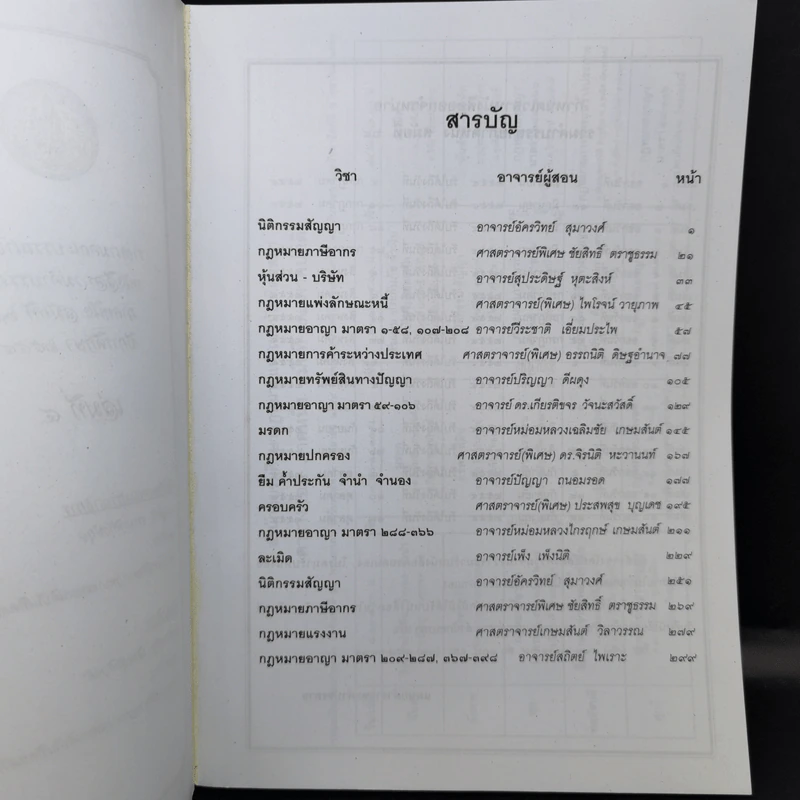 สารบัญ
วิชา อาจารย์ผู้สอน หน้า
นิติกรรมสัญญา อาจารย์อัครวิทย์ สุมาวงศ์ ๑
กฎหมายภาษีอากร ศาสตราจารย์พิเศษ ชัยสิทธิ์ ตราชูธรรม ๒๑
หุ้นส่วน - บริษัท อาจารย์สุประดิษฐ์ หุตะสิงห์ ๓๓
กฎหมายแพ่งลักษณะหนี้ ศาสตราจารย์(พิเศษ) ไพโรจน์ วายุภาพ ๔๕
กฎหมายอาญา มาตรา ๑-๕๘, ๑๐๗-๒๐๘ อาจารย์วีระชาติ เอี่ยมประไพ ๕๗
กฎหมายการค้าระหว่างประเทศ ศาสตราจารย์(พิเศษ) อรรถนิติ ดิษฐอำนาจ ๗๗
กฎหมายทรัพย์สินทางปัญญา อาจารย์ปริญญา ดีผดุง ๑๐๕
กฎหมายอาญา มาตรา ๕๙-๑๐๖ อาจารย์ ดร.เกียรติขจร วัจนะสวัสดิ์ ๑๒๙
มรดก อาจารย์หม่อมหลวงเฉลิมชัย เกษมสันต์ ๑๔๕
กฎหมายปกครอง ศาสตราจารย์(พิเศษ) ดร.จิรนิติ หะวานนท์ ๑๖๗
ยืม ค้ำประกัน จำนำ จำนอง อาจารย์ปัญญา ถนอมรอด ๑๗๗
ครอบครัว ศาสตราจารย์(พิเศษ) ประสพสุข บุญเดช ๑๙๕
กฎหมายอาญา มาตรา ๒๘๘-๓๖๖ อาจารย์หม่อมหลวงไกรฤกษ์ เกษมสันต์ ๒๑๑
ละเมิด อาจารย์เพ็ง เพ็งนิติ ๒๒๙
นิติกรรมสัญญา อาจารย์อัครวิทย์ สุมาวงศ์ ๒๕๑
กฎหมายภาษีอากร ศาสตราจารย์พิเศษ ชัยสิทธิ์ ตราชูธรรม ๒๖๙
กฎหมายแรงงาน ศาสตราจารย์เกษมสันต์ วิลาวรรณ ๒๗๙
กฎหมายอาญา มาตรา ๒๐๙-๒๘๗, ๓๖๗-๓๙๘ อาจารย์สถิตย์ ไพเราะ ๒๙๙